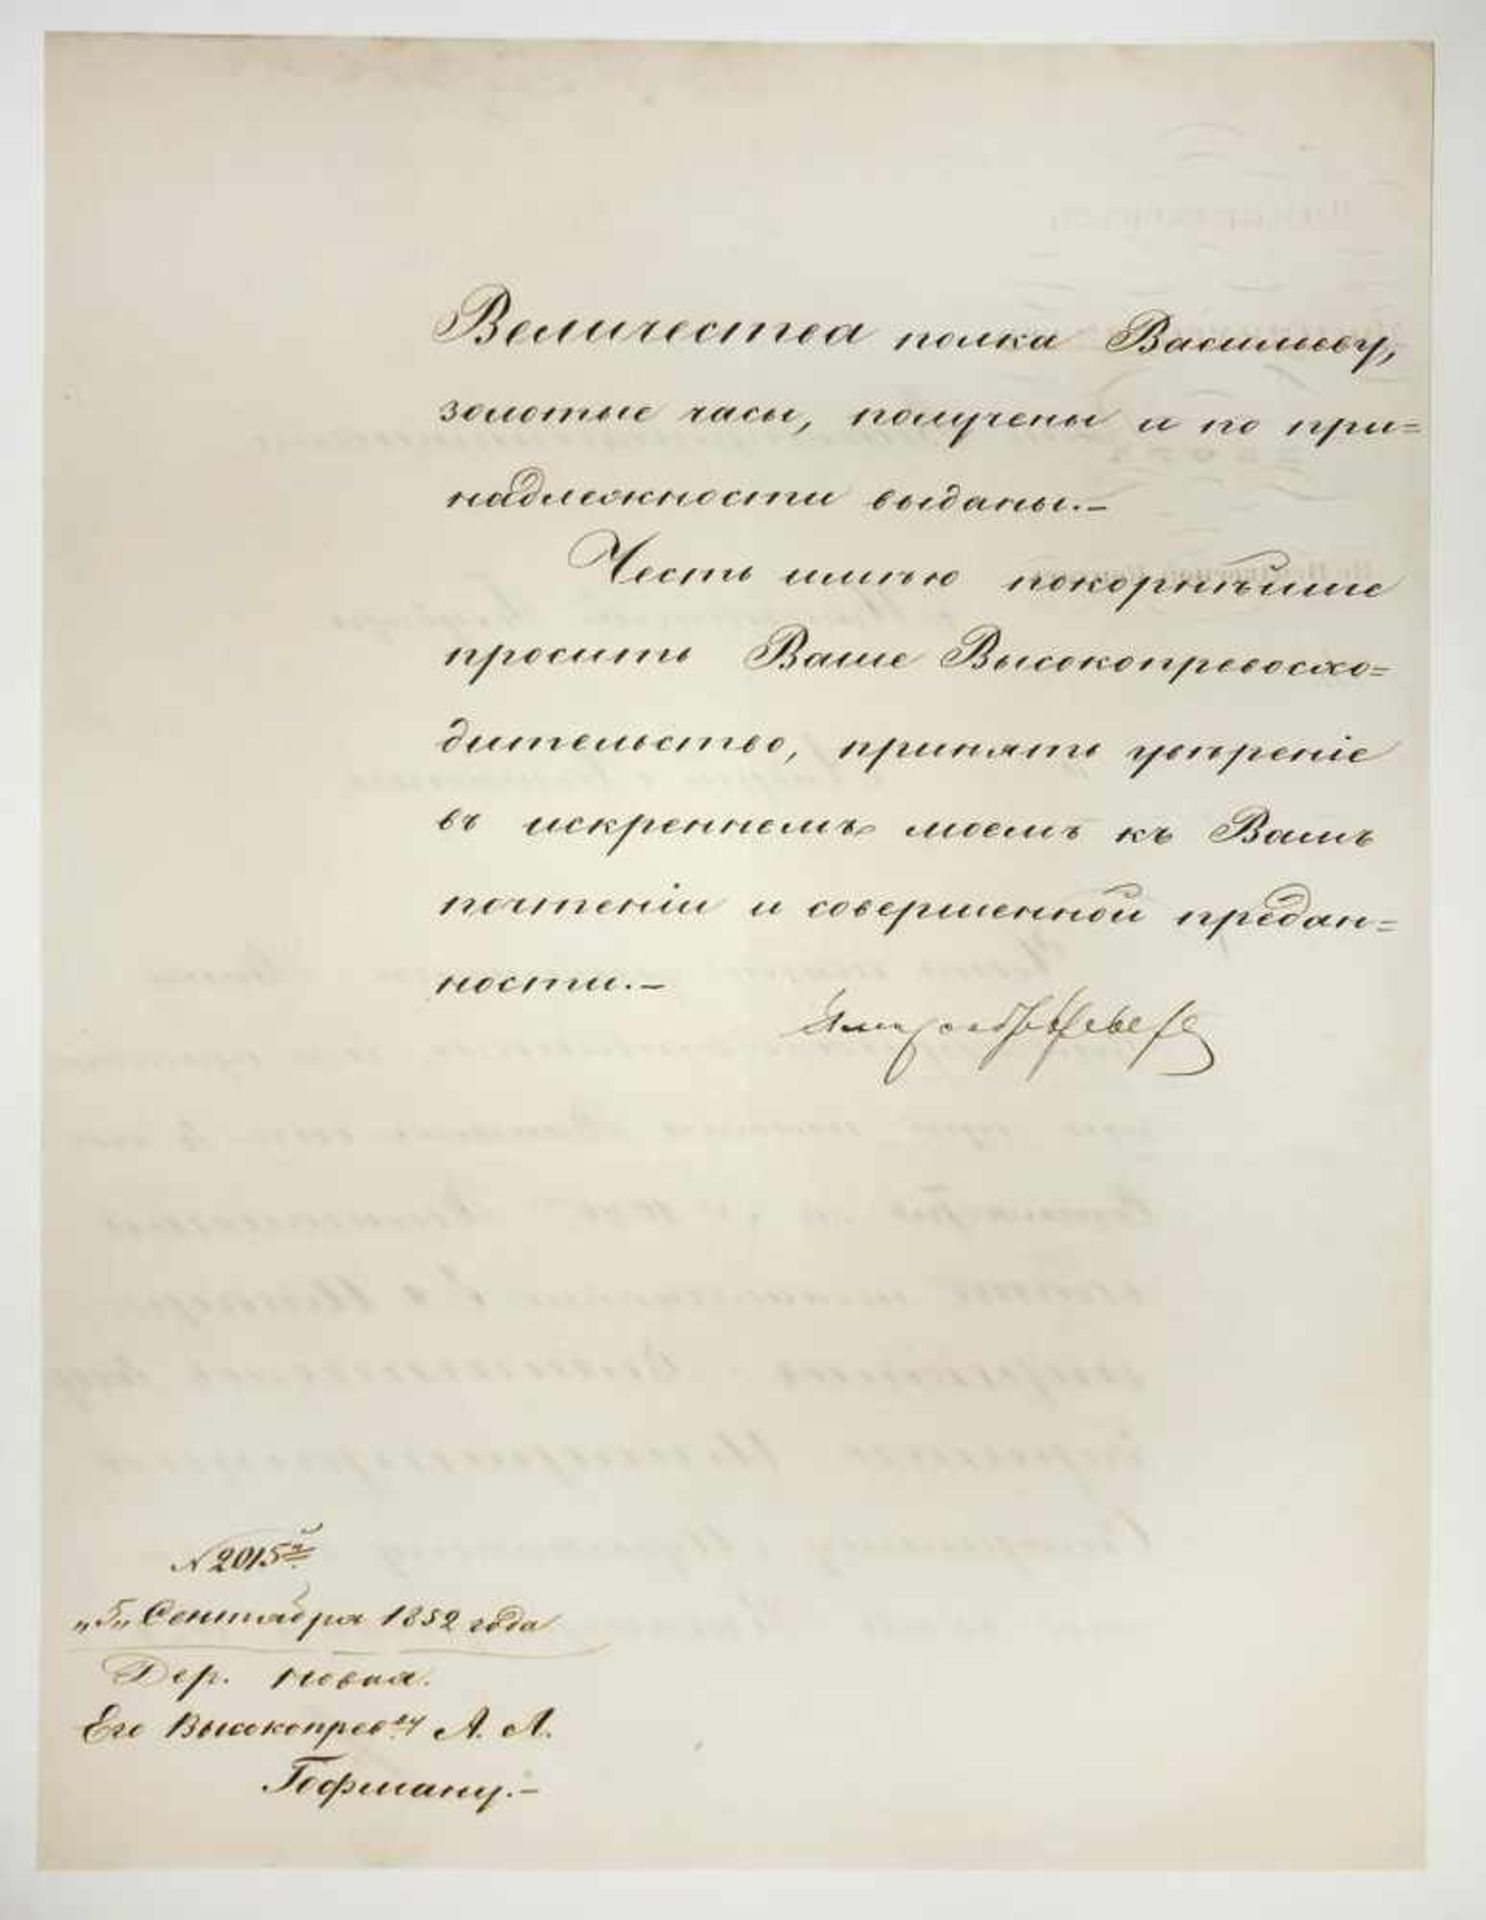 Величества полка Васильеву,
золотые часы, получены и по при=
надлежности выданы.–
Честь имѣю покорнѣйше
просить Ваше Высокопревосхо=
дительство, принять увѣреніе
въ искреннемъ моемъ къ Вамъ
почтеніи и совершенной предан=
ности.–
№ 2015й
„5„ Сентября 1852 года
Дер. Новая.
Его Высокопрев-ву А. Л.
Гофману.–